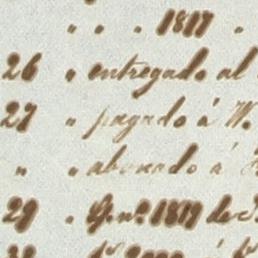 " " . 1817 .
26 " entregado al
27 " pagado á W.
" " abonado á
29 " Gen.º 1817 de